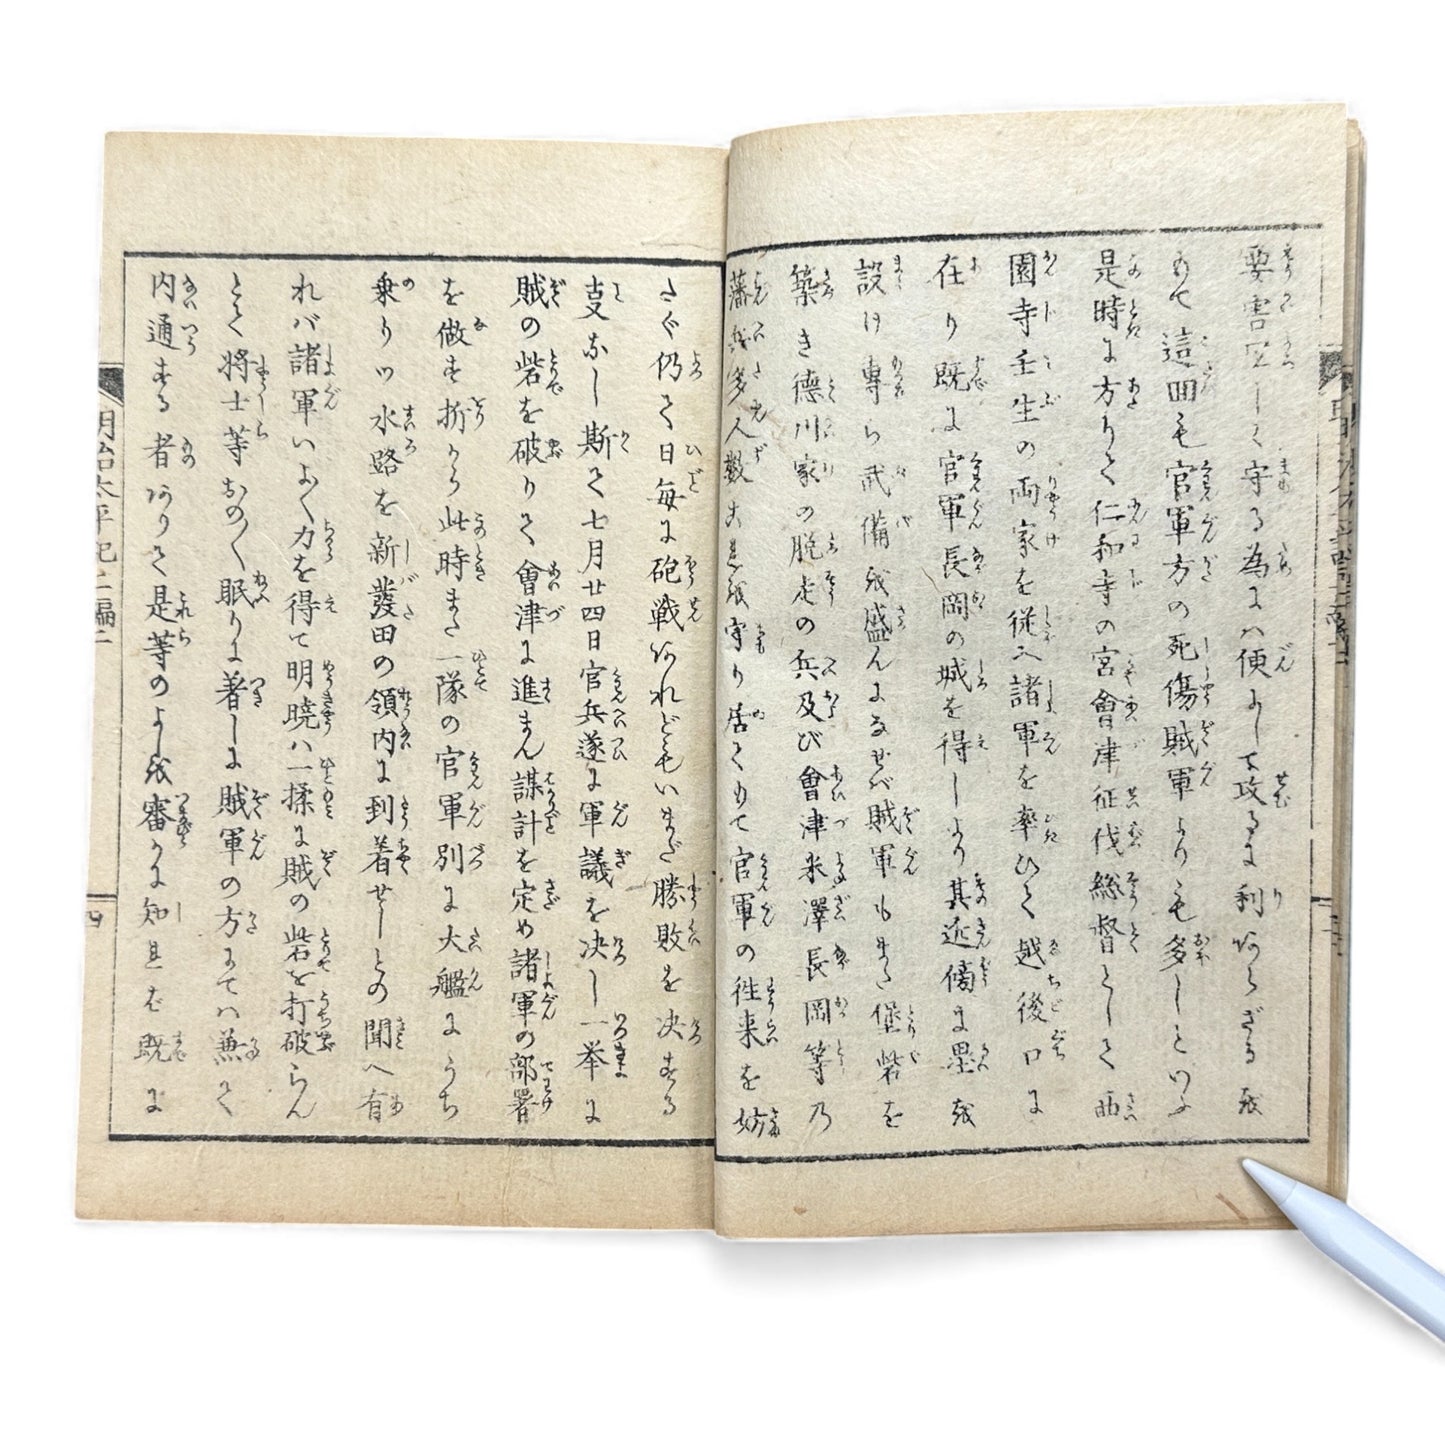 要害宜しく守る為には便よしと攻るに利あらざるを
もて這囬も官軍方の死傷賊軍よりも多しといふ
是時に方りて仁和寺の宮會津征伐総督として西
園寺壬生の両家を従へ諸軍を率ひて越後口に
在り既に官軍長岡の城を得しより其近傍に塁を
設け専ら武備を盛んになせバ賊軍もまた堡砦を
築き徳川家の脱走の兵及び會津米澤長岡等乃
藩兵多人数これを守り居てもて官軍の徃来を妨
さぐ仍て日毎に砲戦あれどもいまだ勝敗を决する
叓なし斯て七月廿四日官兵遂に軍議を决し一挙に
賊の砦を破りて會津に進まん謀計を定め諸軍の部署
を做す折から此時また一隊の官軍別に大艦にうち
乗りツ水路を新發田の領内に到着せしとの聞へ有
れバ諸軍いよ〳〵力を得て明暁ハ一揉に賊の砦を打破らん
とて将士等おの〳〵眠りに著しに賊軍の方にてハ兼て
内通する者ありて是等のよしを審かに知れば既に
明治太平記二編二
四